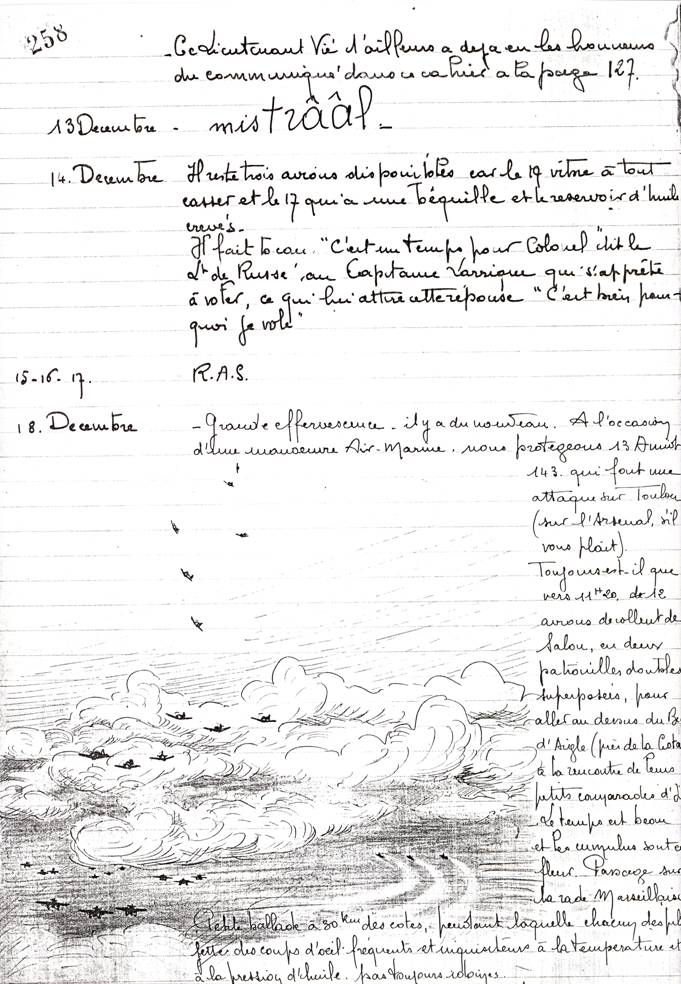 258
- Ce Lieutenant Vié d'ailleurs a deja eu les honneurs
du communiqué dans ce cahier a la page 127.
13 Decembre - mistrââl -
14. Decembre Il reste trois avions disponibles car le 19 vibre à tout
casser et le 17 qui a une béquille et le reservoir d'huile
crevés -
Il fait beau. "C'est un temps pour Colonel" dit le
Lt de Russé au Capitaine Varrique qui s'apprête
à voler, ce qui lui attire cette réponse "C'est bien pour-
quoi je vole"
15-16-17. R.A.S.
18. Decembre - Grande effervescence - il y a du nouveau. A l'occasion
d'une manoeuvre Air-Marine, nous protegeons 13 Amiot
143. qui font une
attaque sur Toulon
(sur l'Arsenal, s'il
vous plaît).
Toujours est-il que
vers 11H20, de 12
avions decollent de
Salon, en deux
patrouilles doubles
superposées, pour
aller au dessus du Be
d'Aigle (près de la Ciota
à la rencontre de leurs
petits camarades d'
Le temps est beau
et les cumulus sont e
fleur. Passage sur
la rade Marseillaise
Petite ballade à 30 km des cotes, pendant laquelle chacun des pil
jette des coups d'oeil frequents et inquisiteurs à la temperature et
à la pression d'huile. pas toujours